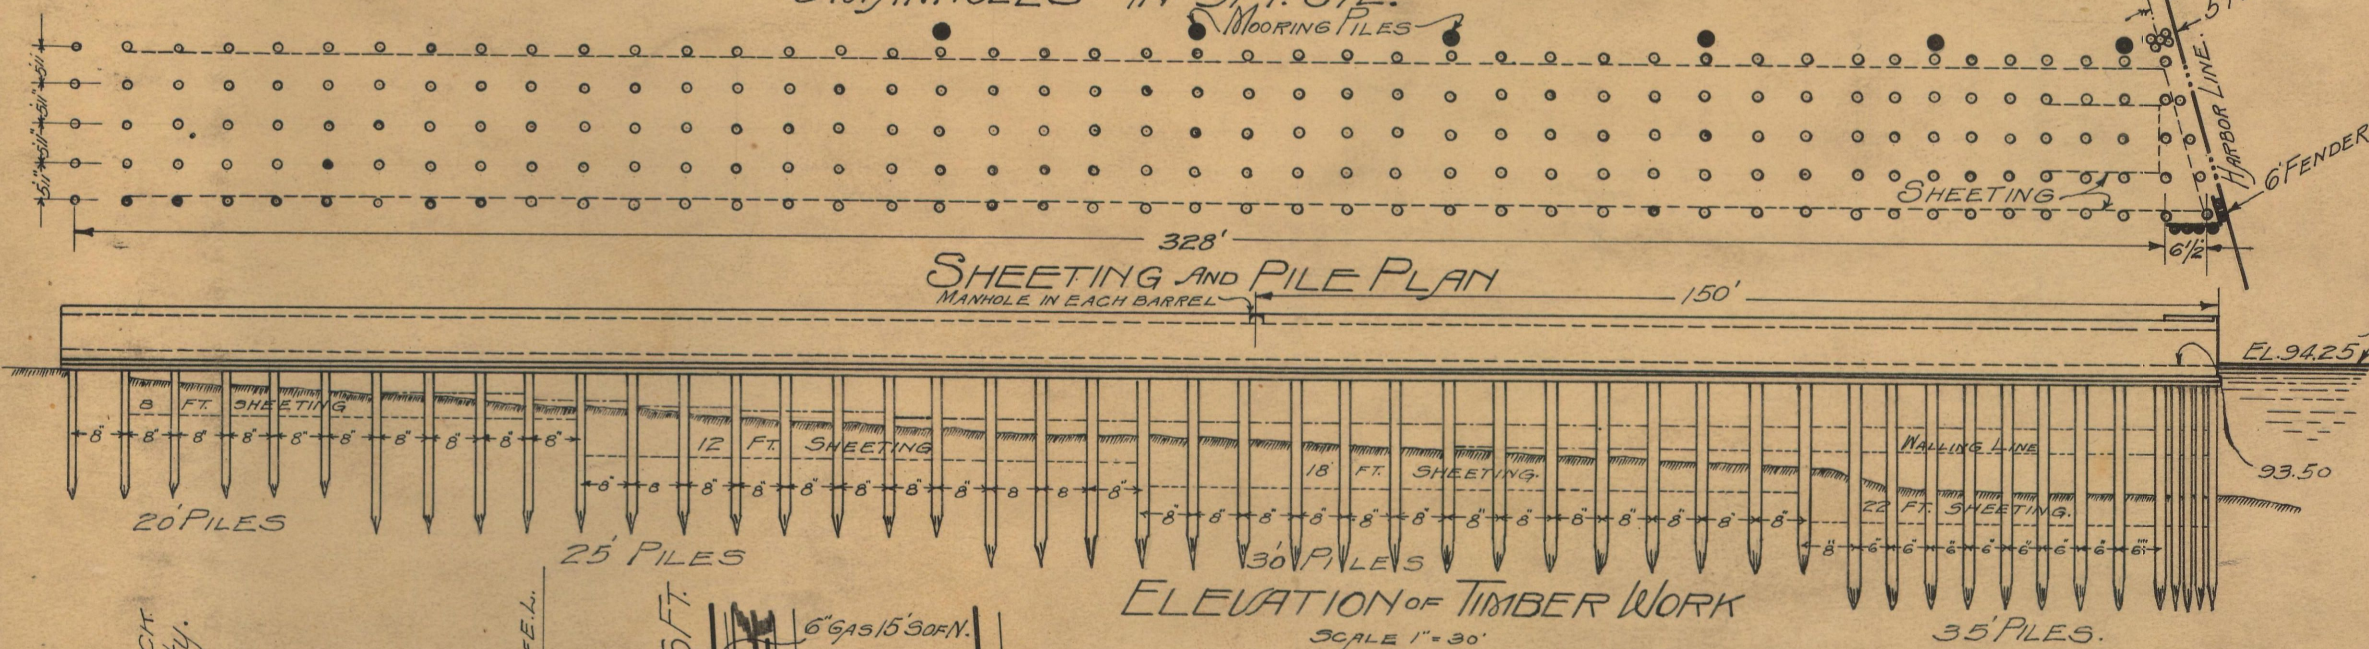 MOORING PILES
HARBOR LINE.
6' FENDER
5'1" 5'1" 5'1" 5'1"
SHEETING
328'
6 1/2'
SHEETING AND PILE PLAN
MANHOLE IN EACH BARREL
150'
EL. 94.25
8 FT. SHEETING
8" 8" 8" 8" 8" 8" 8" 8" 8" 8"
12 FT. SHEETING
6" 8 8" 8" 8" 8" 8" 8" 8 8 8"
WALLING LINE
18 FT. SHEETING.
93.50
8" 8" 8" 8" 8" 8" 8" 8" 8" 8" 8" 8" 8"
22 FT. SHEETING.
8" 6" 6" 6" 6" 6" 6" 6" 6"
20' PILES
25' PILES
30' PILES
35' PILES.
ELEVATION OF TIMBER WORK
SCALE 1" = 30'
6" GAS 15' S OF N.